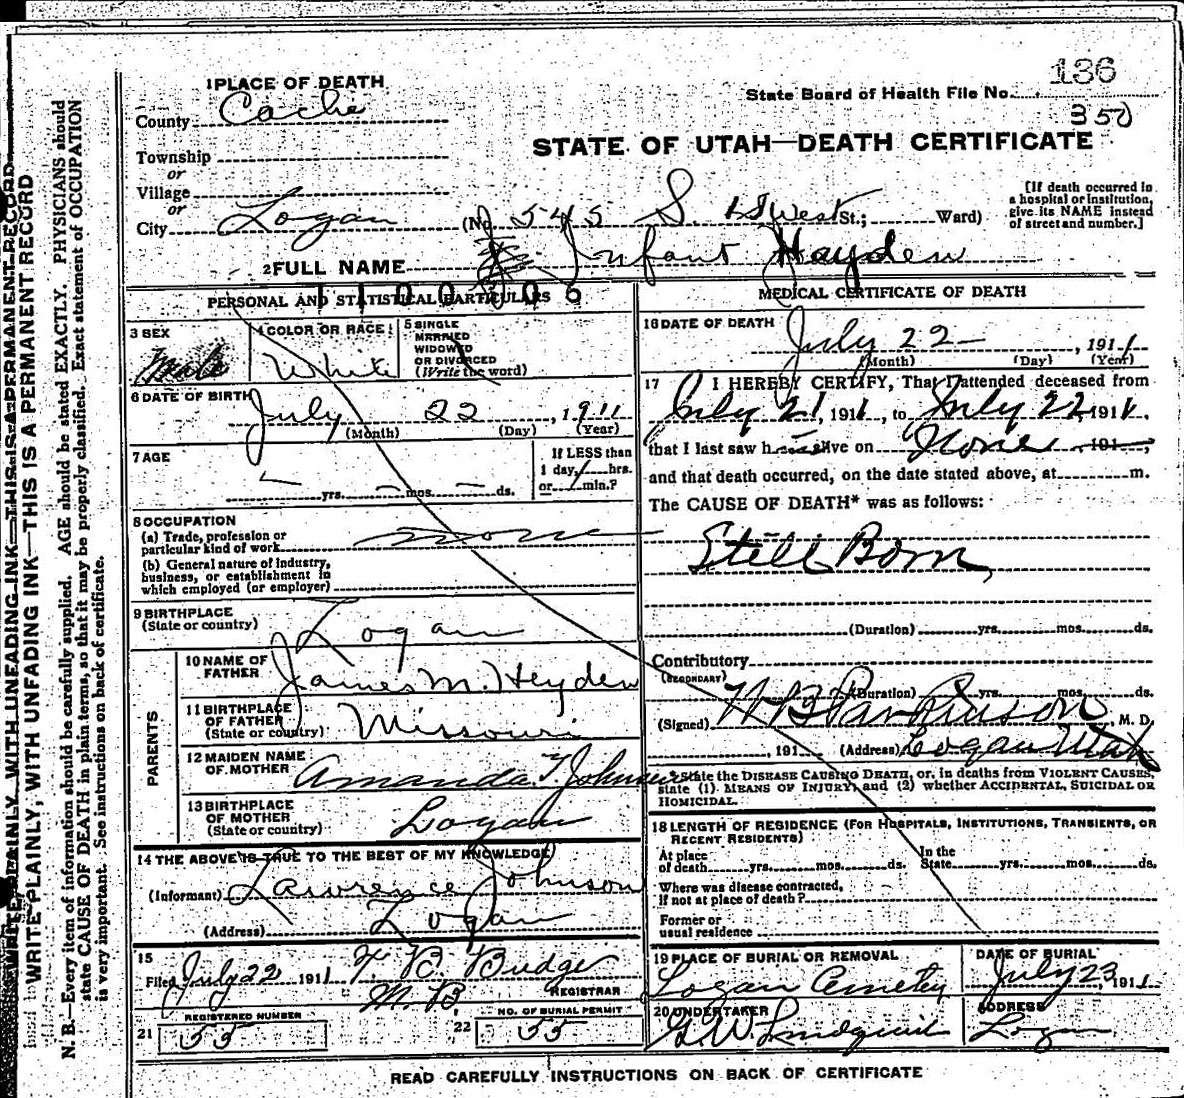 136
State Board of Health File No.
350
1 PLACE OF DEATH
County Cache
STATE OF UTAH—DEATH CERTIFICATE
Township
or
Village
or
City Logan (No. 545 S. 1st West St.; Ward)
[If death occurred in
a hospital or institution,
give its NAME instead
of street and number.]
2 FULL NAME Infant Hayden
1100706
PERSONAL AND STATISTICAL PARTICULARS
3 SEX Male
4 COLOR OR RACE White
5 SINGLE
MARRIED
WIDOWED
OR DIVORCED
(Write the word)
6 DATE OF BIRTH
July 22, 1911
(Month) (Day) (Year)
7 AGE
— yrs. — mos. — ds.
If LESS than
1 day, hrs.
or min.?
8 OCCUPATION
(a) Trade, profession or
particular kind of work none
(b) General nature of industry,
business, or establishment in
which employed (or employer)
9 BIRTHPLACE
(State or country) Logan
PARENTS
10 NAME OF
FATHER James M. Heyden
11 BIRTHPLACE
OF FATHER
(State or country) Missouri
12 MAIDEN NAME
OF MOTHER Amanda T. Johnson
13 BIRTHPLACE
OF MOTHER
(State or country) Logan
14 THE ABOVE IS TRUE TO THE BEST OF MY KNOWLEDGE
(Informant) Lawrence Johnson
(Address) Logan
15
Filed July 22 1911 T. B. Budge
M.D. REGISTRAR
REGISTERED NUMBER
21 55
NO. OF BURIAL PERMIT
22 55
MEDICAL CERTIFICATE OF DEATH
16 DATE OF DEATH
July 22—, 1911
(Month) (Day) (Year)
17 I HEREBY CERTIFY, That I attended deceased from
July 21 1911, to July 22 1911,
that I last saw h alive on None 191
and that death occurred, on the date stated above, at m.
The CAUSE OF DEATH* was as follows:
Still Born
(Duration) yrs. mos. ds.
Contributory
(SECONDARY)
(Duration) yrs. mos. ds.
(Signed) W B Parkinson, M. D.
, 191 (Address) Logan Utah
State the DISEASE CAUSING DEATH, or, in deaths from VIOLENT CAUSES,
state (1) MEANS OF INJURY; and (2) whether ACCIDENTAL, SUICIDAL OR
HOMICIDAL.
18 LENGTH OF RESIDENCE (FOR HOSPITALS, INSTITUTIONS, TRANSIENTS, OR
RECENT RESIDENTS)
At place
of death yrs. mos. ds. In the
State yrs. mos. ds.
Where was disease contracted,
if not at place of death?
Former or
usual residence
19 PLACE OF BURIAL OR REMOVAL
Logan Cemetery
DATE OF BURIAL
July 23, 1911
20 UNDERTAKER
G W Lindquist
ADDRESS
Logan
READ CAREFULLY INSTRUCTIONS ON BACK OF CERTIFICATE
WRITE PLAINLY, WITH UNFADING INK—THIS IS A PERMANENT RECORD
WRITE PLAINLY, WITH UNFADING INK—THIS IS A PERMANENT RECORD
N. B.—Every item of information should be carefully supplied. AGE should be stated EXACTLY. PHYSICIANS should
state CAUSE OF DEATH in plain terms, so that it may be properly classified. Exact statement of OCCUPATION
is very important. See instructions on back of certificate.